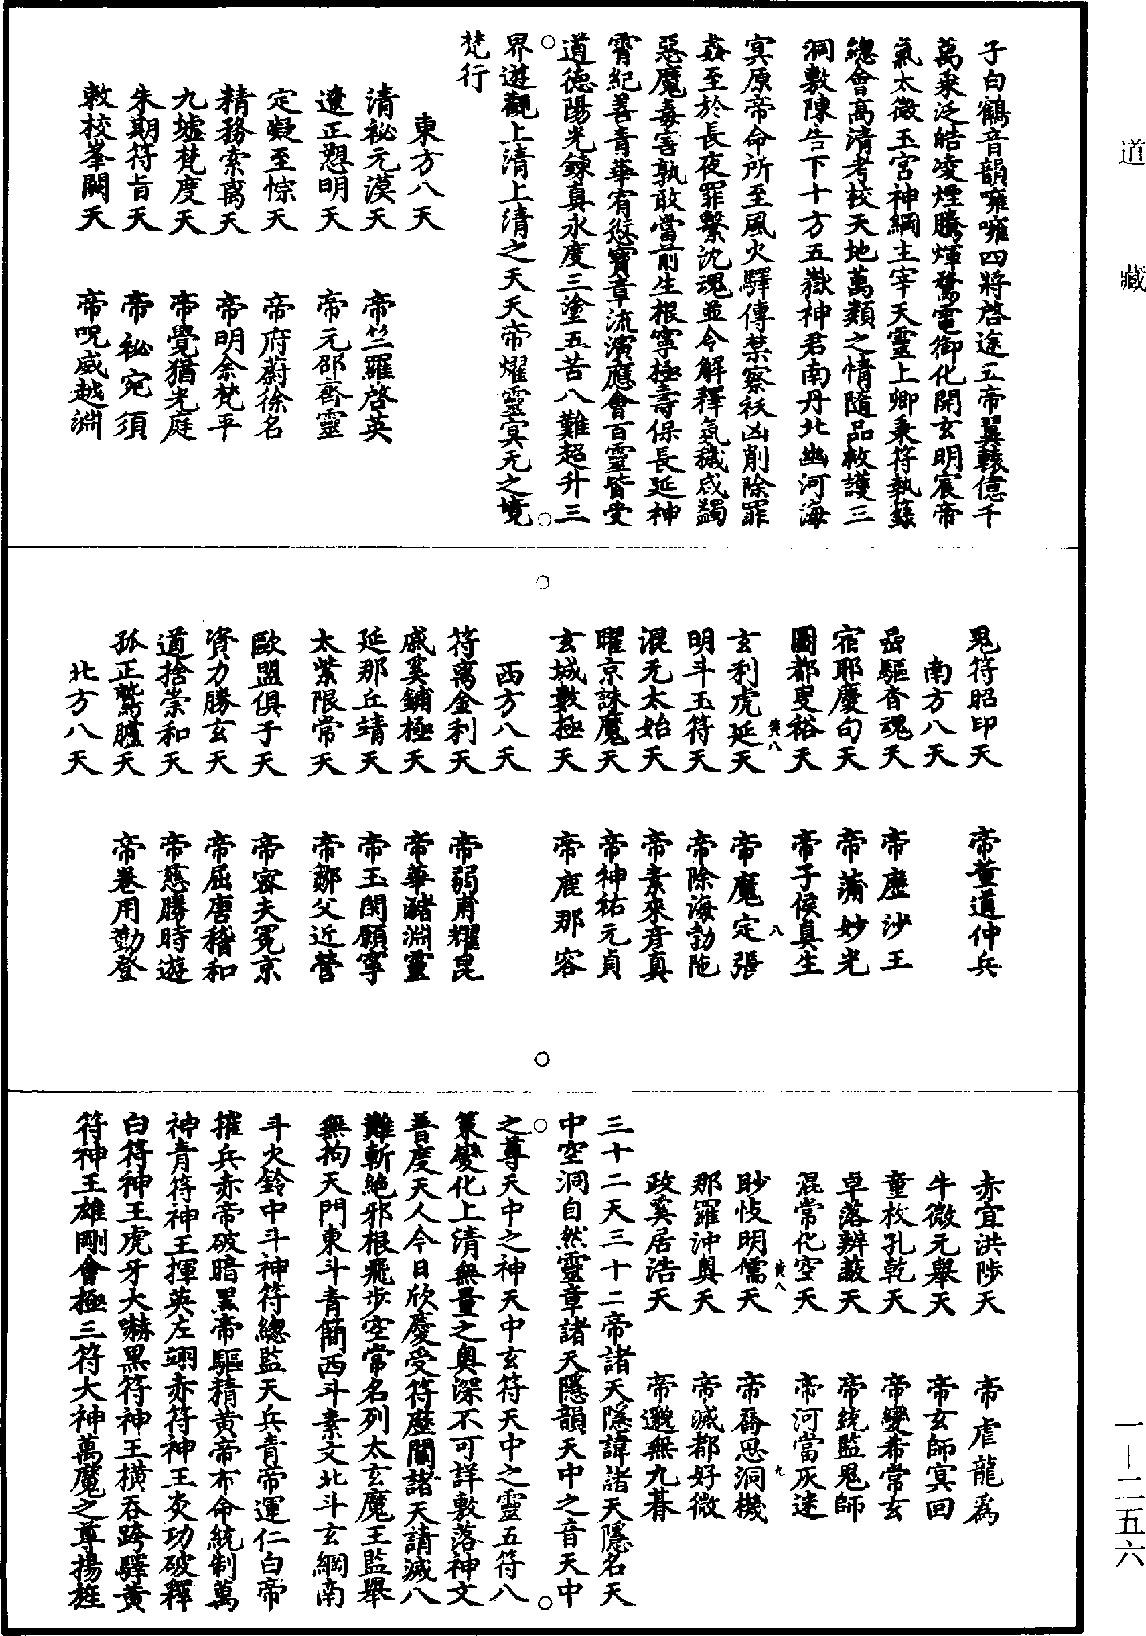 道藏
子白鶴音韻嗈嗈四將啓途五帝翼轅億千
萬乘泛皓凌煙騰煇驁電御化開玄明宸帝
氣太微玉宮神綱主宰天靈上卿秉符執籙
總會高清考校天地萬類之情隨品救護三
洞敷陳告下十方五嶽神君南丹北幽河海
冥原帝命所至風火驛傳禁察祅凶削除罪
姦至於長夜罪繫沈魂並令解釋氣穢咸蠲
惡魔毒害孰敢當前生根寧極壽保長延神
霄紀善青華宥愆寶章流演應會百靈皆受
道德陽光鍊真水度三塗五苦八難超升三
界遊觀上清上清之天天帝燿靈冥无之境
梵行
東方八天
清祕元漠天 帝竺羅啓英
遼正懇明天 帝元邵齊靈
定凝至悰天 帝府蔚徐名
精務索离天 帝明余梵平
九墟梵度天 帝覺猶光庭
朱期符旨天 帝祕宛須
敕校峯闕天 帝呪威越淵
鬼符昭印天 帝董道仲兵
南方八天
岳驅杳魂天 帝塵沙王
宿耶慶句天 帝蒲妙光
圖都叟裕天 帝子俟真生
黃八 八
玄利虎延天 帝魔定張
明斗玉符天 帝除海勃陁
混元太始天 帝素來彥真
曜京誅魔天 帝神祐元貞
玄城數極天 帝鹿那容
西方八天
符离金利天 帝弱甫耀昆
戚奚鋪極天 帝華豬淵靈
延那丘靖天 帝玉閔願寧
太紫限常天 帝鄒父近營
歐盟俱于天 帝容夫冕京
資力勝玄天 帝屈唐稽和
道捨崇和天 帝慈勝時遊
孤正鷟臚天 帝卷用勤登
北方八天
赤宜洪陟天 帝虐龍為
牛微元舉天 帝玄師冥回
童枚孔乾天 帝變希常玄
卓落辨蔽天 帝統監鬼師
混常化空天 帝河當灰迷
眇忮明儒天 帝喬思洞機
黃八 九
那羅沖奥天 帝堿都好微
政奚居浩天 帝邀無九暮
三十二天三十二帝諸天隱諱諸天隱名天
中空洞自然靈章諸天隱韻天中之音天中
之尊天中之神天中玄符天中之靈五符八
策變化上清無量之奥深不可詳敷落神文
普度天人今日欣慶受符歷關諸天請滅八
難斬絕邪根飛步空常名列太玄魔王監舉
無拘天門東斗青簡西斗素文北斗玄綱南
斗火鈴中斗神符總監天兵青帝運仁白帝
摧兵赤帝破暗黑帝驅精黃帝布命統制萬
神青符神王揮英左翊赤符神王炎功破釋
白符神王虎牙大嚇黑符神王橫吞跨驛黃
符神王雄剛會極三符大神萬魔之尊揚旌
一—二五六